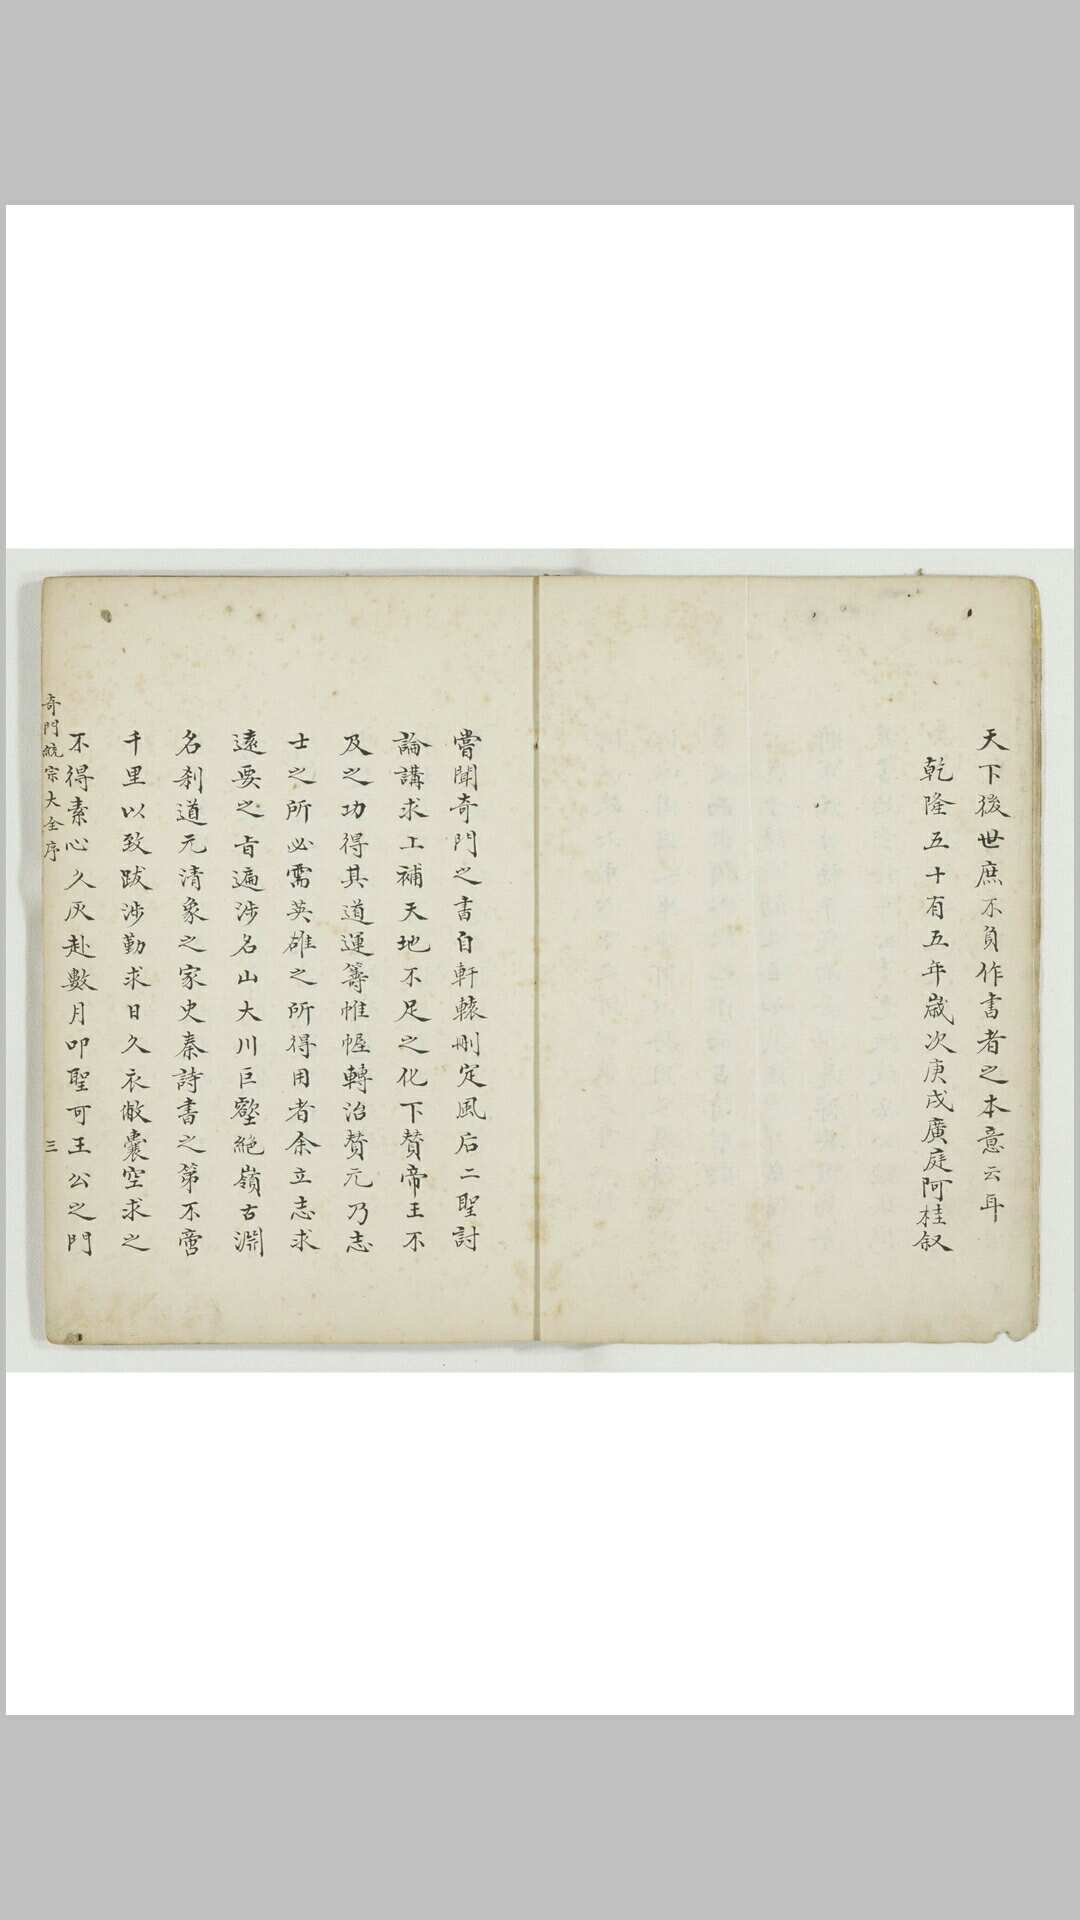 天下後世庶不負作書者之本意云耳
乾隆五十有五年歲次庚戌廣庭阿桂叙
嘗聞奇門之書自軒轅刪定風后二聖討
論講求上補天地不足之化下贊帝王不
及之功得其道運籌帷幄轉治贊元乃志
士之所必需英雄之所得用者余立志求
遠要之旨遍涉名山大川巨壑絕嶺古淵
名刹道元清象之家史秦詩書之第不啻
千里以致跋涉勤求日久衣敝囊空求之
不得素心久灰赴數月叩聖可王公之門
奇門統宗大全序
三